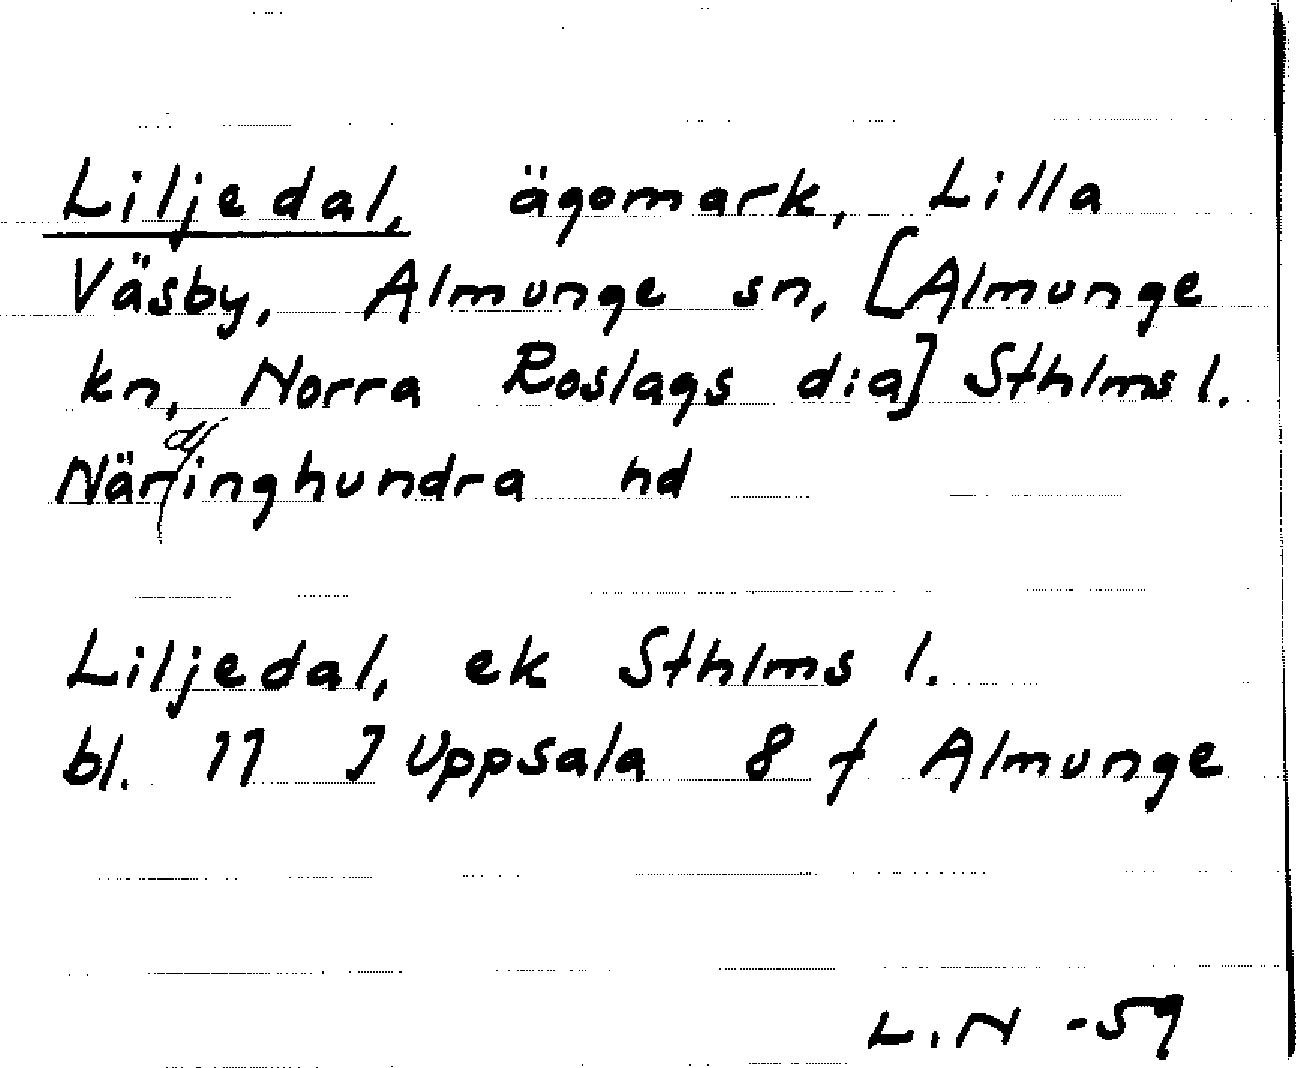 Liljedal, ägomark, Lilla
Väsby, Almunge sn, [Almunge
kn, Norra Roslags dia] Sthlms l.
Närdinghundra hd
Liljedal, ek Sthlms l.
bl. 11 J Uppsala 8 f Almunge
L.N -59